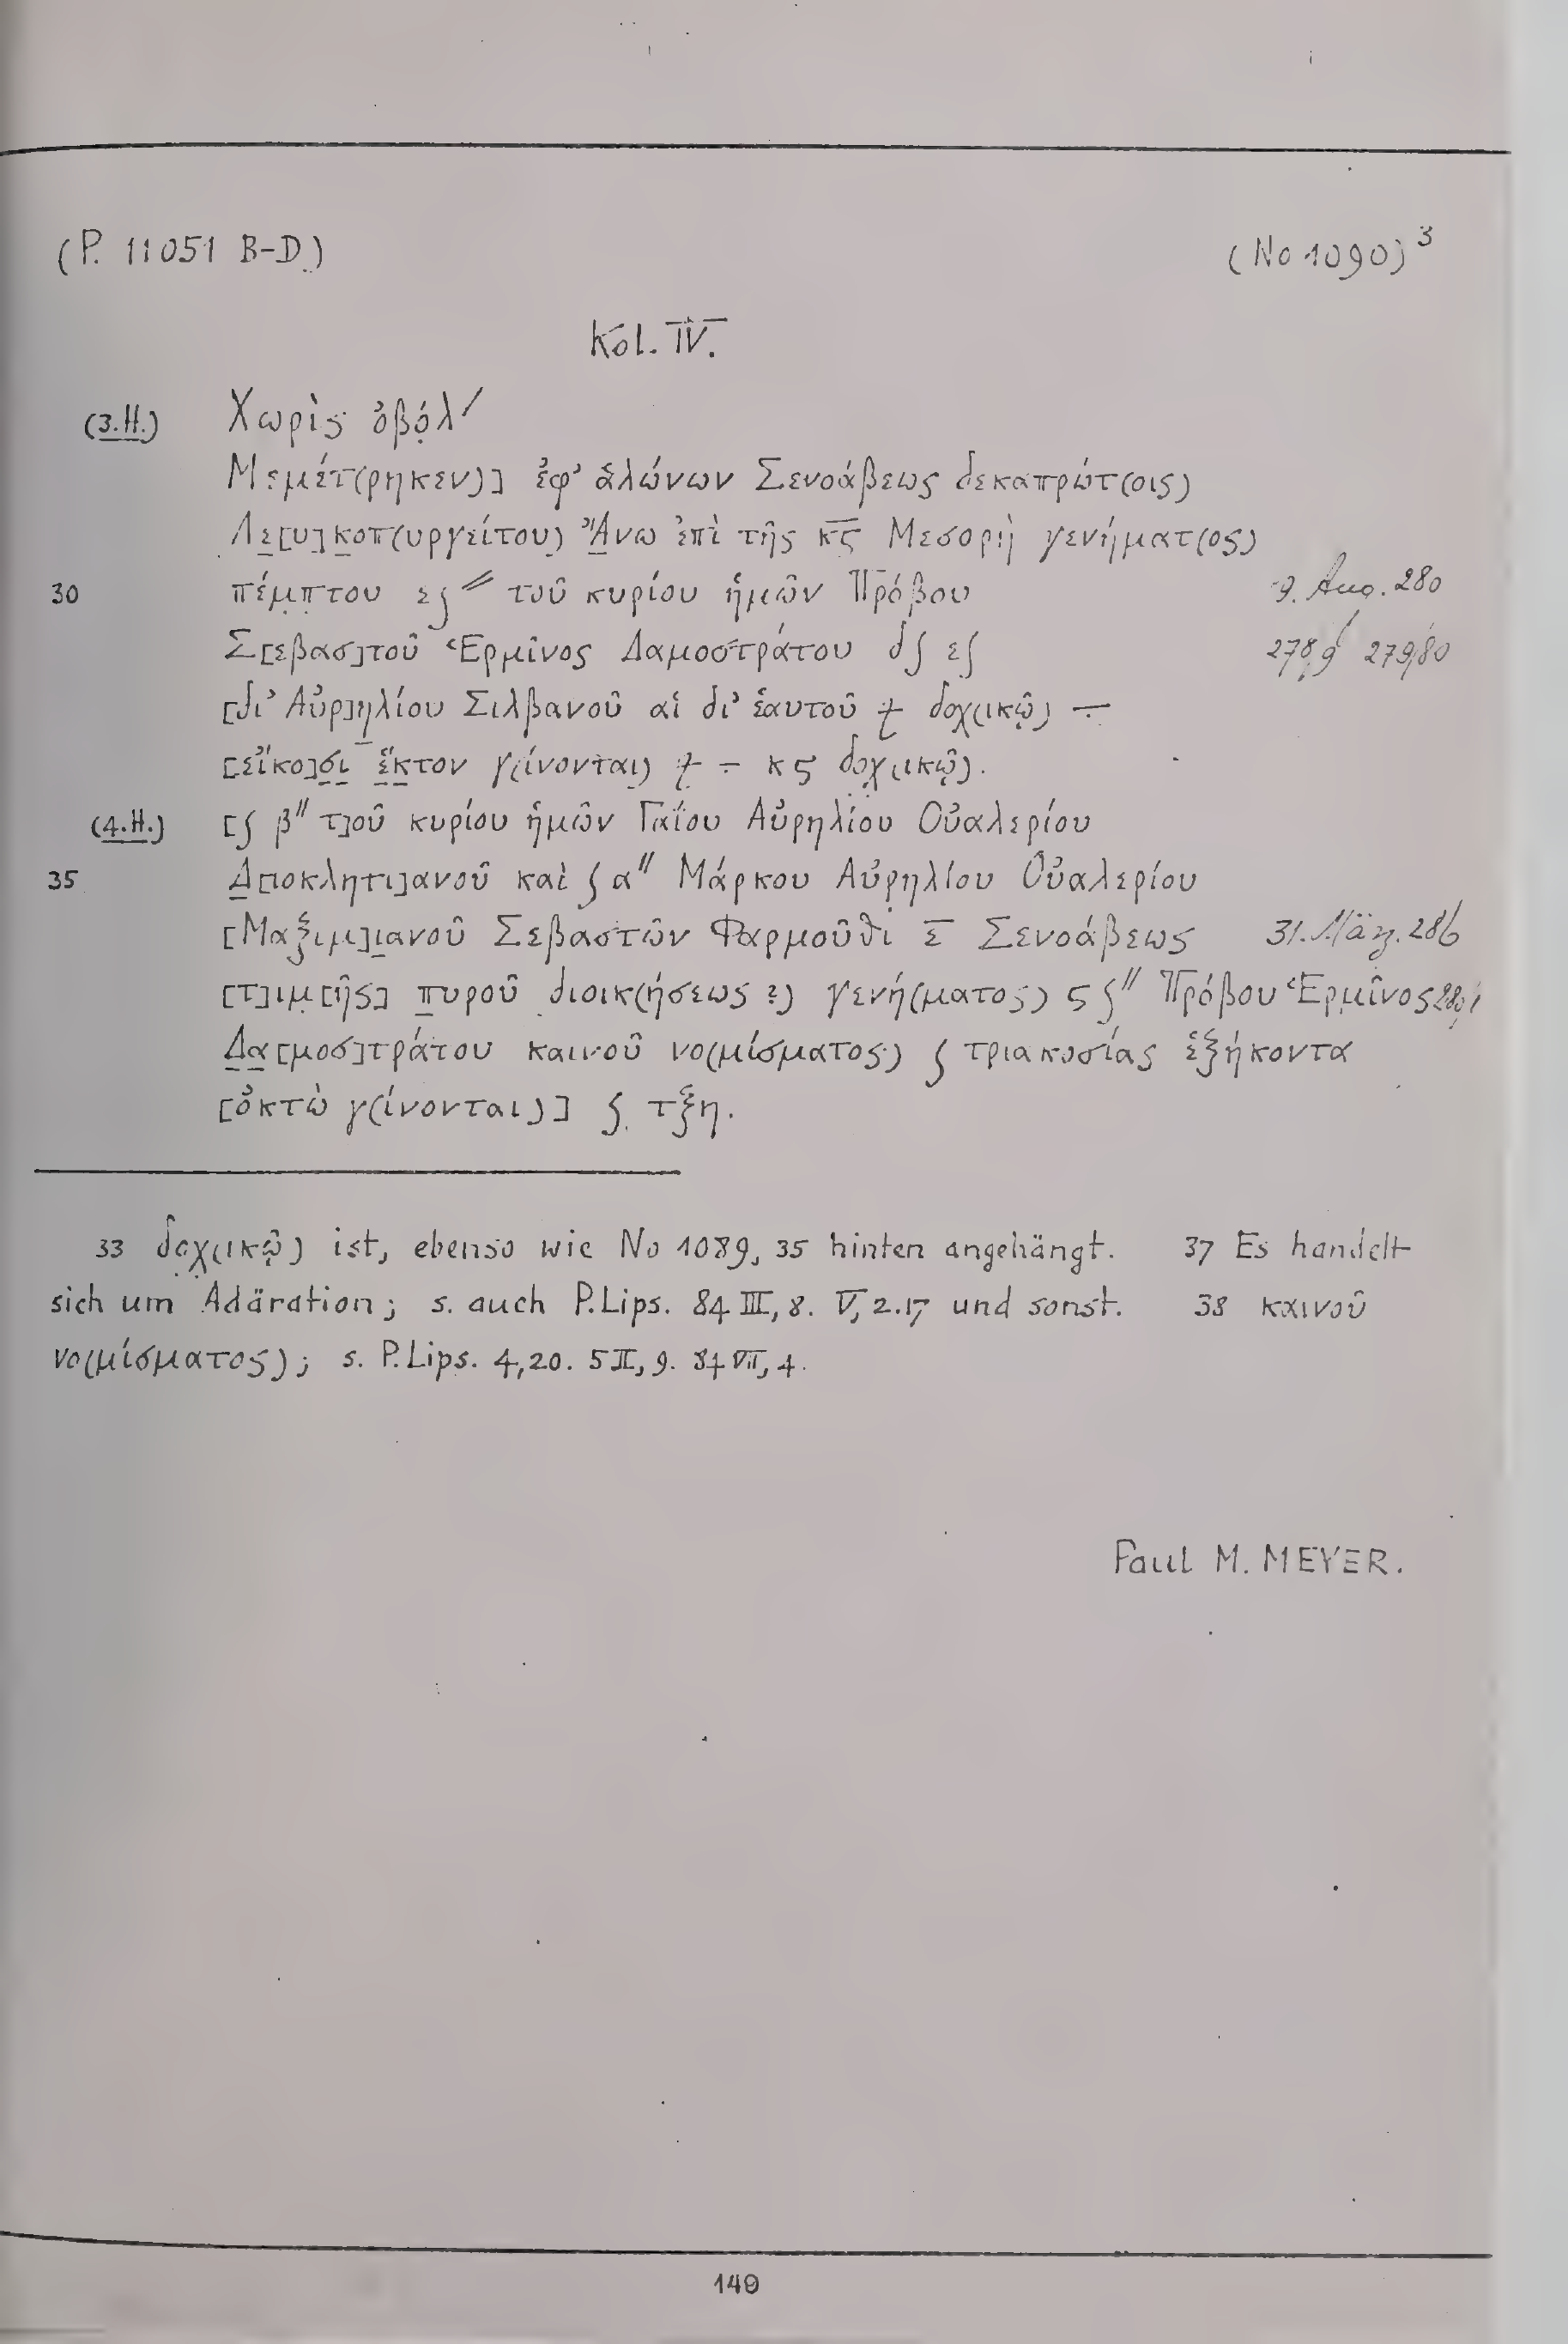 (P. 11051 B-D) (No 1090) 3
Kol. IV.
(3.H.) Χωρὶς ὀβόλ/
Μεμέτ(ρηκεν)] ἐφ' ἁλώνων Σενοάβεως δεκαπρώτ(οις)
Λε[υ]κοπ(υργείτου) Ἄνω ἐπὶ τῆς κ̅ς̅ Μεσορὴ γενήματ(ος)
30 πέμπτου εʃ" τοῦ κυρίου ἡμῶν Πρόβου 9. Aug. 280
Σ[εβασ]τοῦ Ἑρμῖνος Δαμοστράτου δʃ εʃ 278/9 279/80
[δι' Αὐρ]ηλίου Σιλβανοῦ αἱ δι' ἑαυτοῦ ⨍ δοχ(ικῷ) ÷
[εἴκο]σι ἕκτον γ(ίνονται) ⨍ ÷ κϛ δοχ(ικῷ).
(4.H.) [ʃ β" τ]οῦ κυρίου ἡμῶν Γαΐου Αὐρηλίου Οὐαλερίου
35 Δ[ιοκλητι]ανοῦ καὶ ʃ α" Μάρκου Αὐρηλίου Οὐαλερίου
[Μαξιμ]ιανοῦ Σεβαστῶν Φαρμοῦθι ε̅ Σενοάβεως 31. März. 286
[τ]ιμ[ῆς] πυροῦ διοικ(ήσεως ?) γενή(ματος) ϛ ʃ" Πρόβου Ἑρμῖνος 280/1
Δα[μοσ]τράτου καινοῦ νο(μίσματος) ʃ τριακοσίας ἑξήκοντα
[ὀκτὼ γ(ίνονται)] ʃ τξη.
33 δοχ(ικῷ) ist, ebenso wie No 1089, 35 hinten angehängt. 37 Es handelt
sich um Adäration; s. auch P.Lips. 84 III, 8. V, 2.17 und sonst. 38 καινοῦ
νο(μίσματος); s. P.Lips. 4,20. 5 II, 9. 84 VII, 4.
Paul M. MEYER.
149